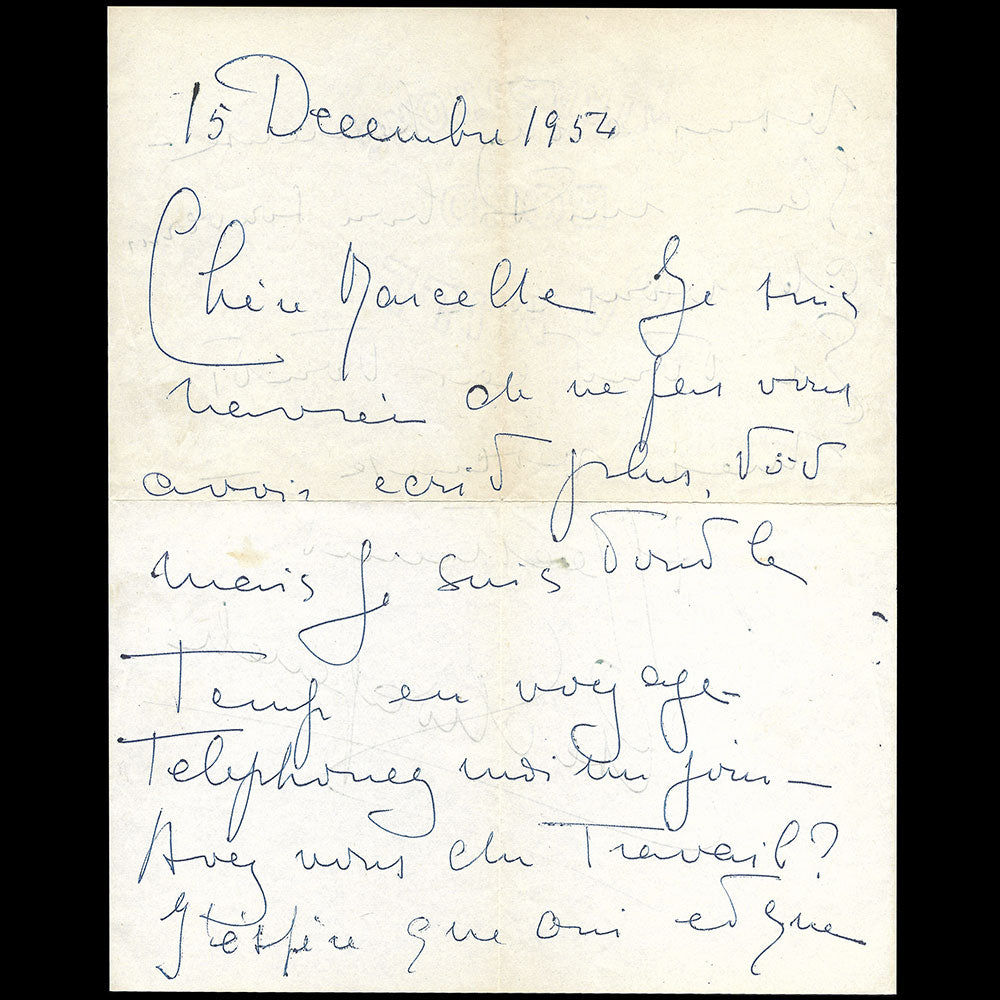 15 Decembre 1954
Chère Marcelle Je suis
navrée de ne pas vous
avoir ecrit plus tôt
mais Je suis tout le
Temps en voyage -
Telephonez moi un jour -
Avez vous du Travail?
J'éspère que oui et que